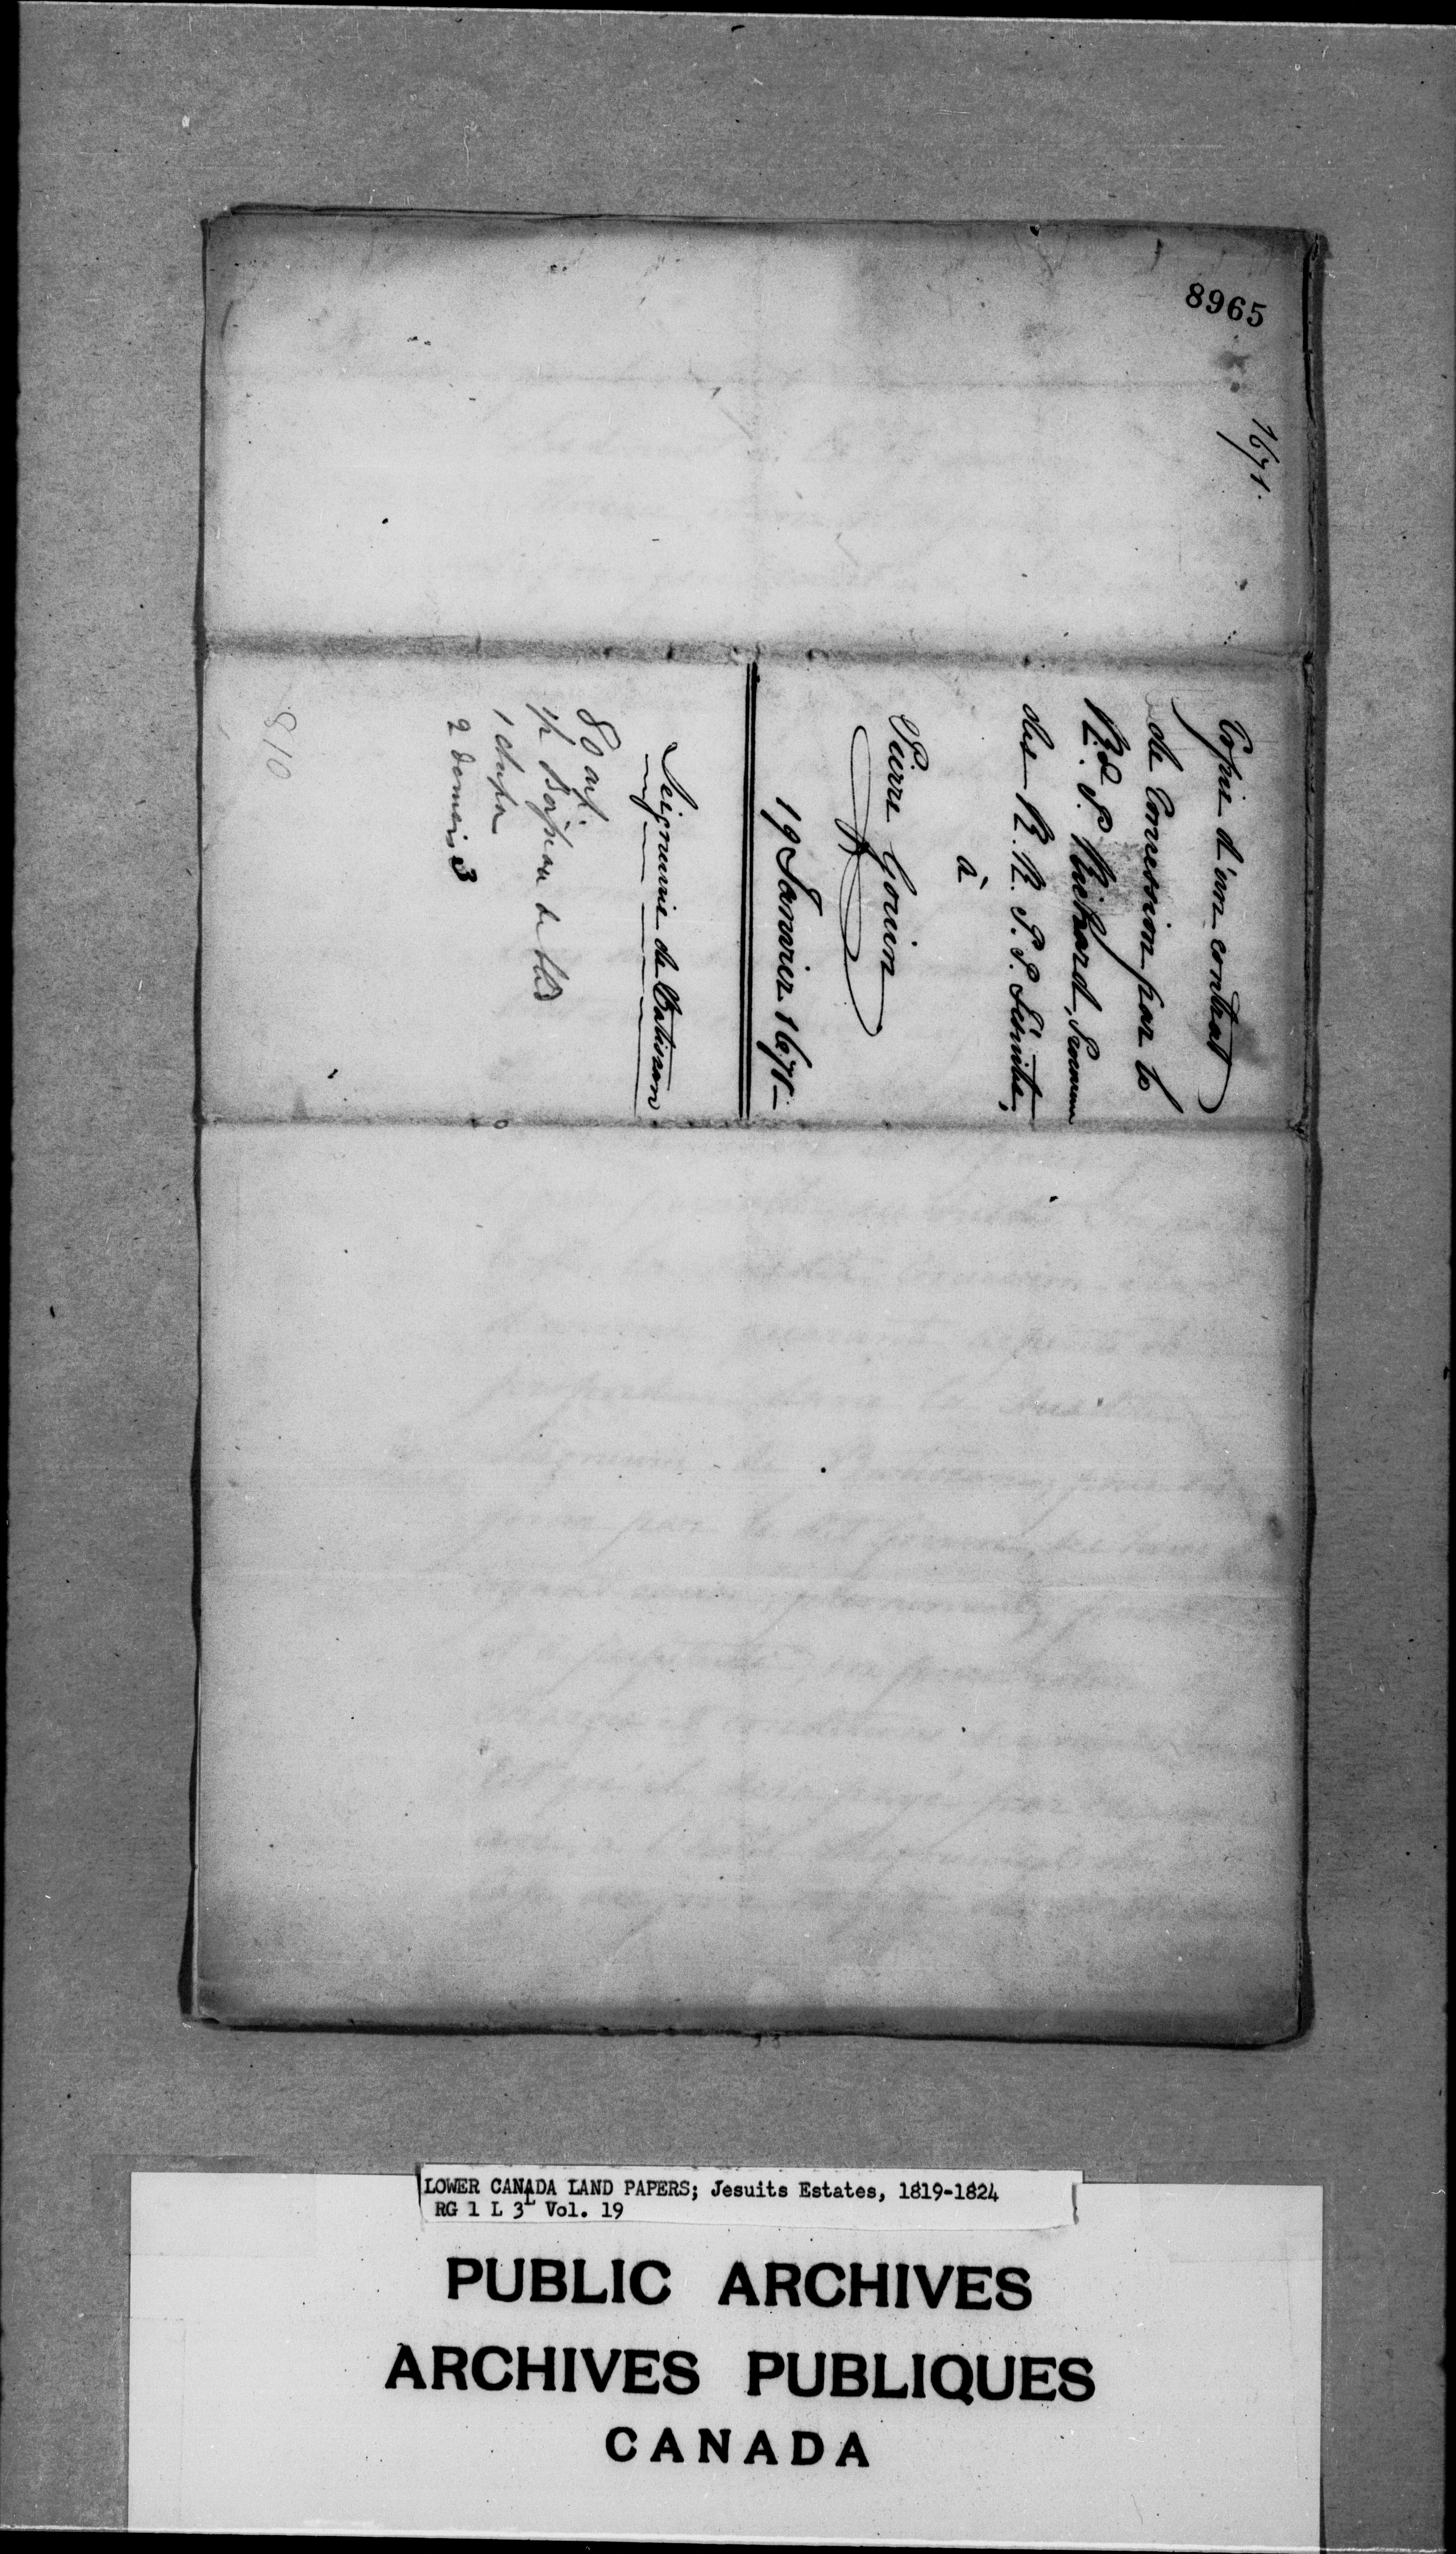 8965
1671.
Copie d'un contrat
de Concession par le
Rd. P. Richard, Procureur
des R. R. P. P. Jésuites,
à
Pierre Gouin
19 Janvier 1671
Seigneurie de Batiscan
80 arp.
de bled
1 chapon
2 deniers
810
LOWER CANADA LAND PAPERS; Jesuits Estates, 1819-1824
RG 1 L 3L Vol. 19
PUBLIC ARCHIVES
ARCHIVES PUBLIQUES
CANADA